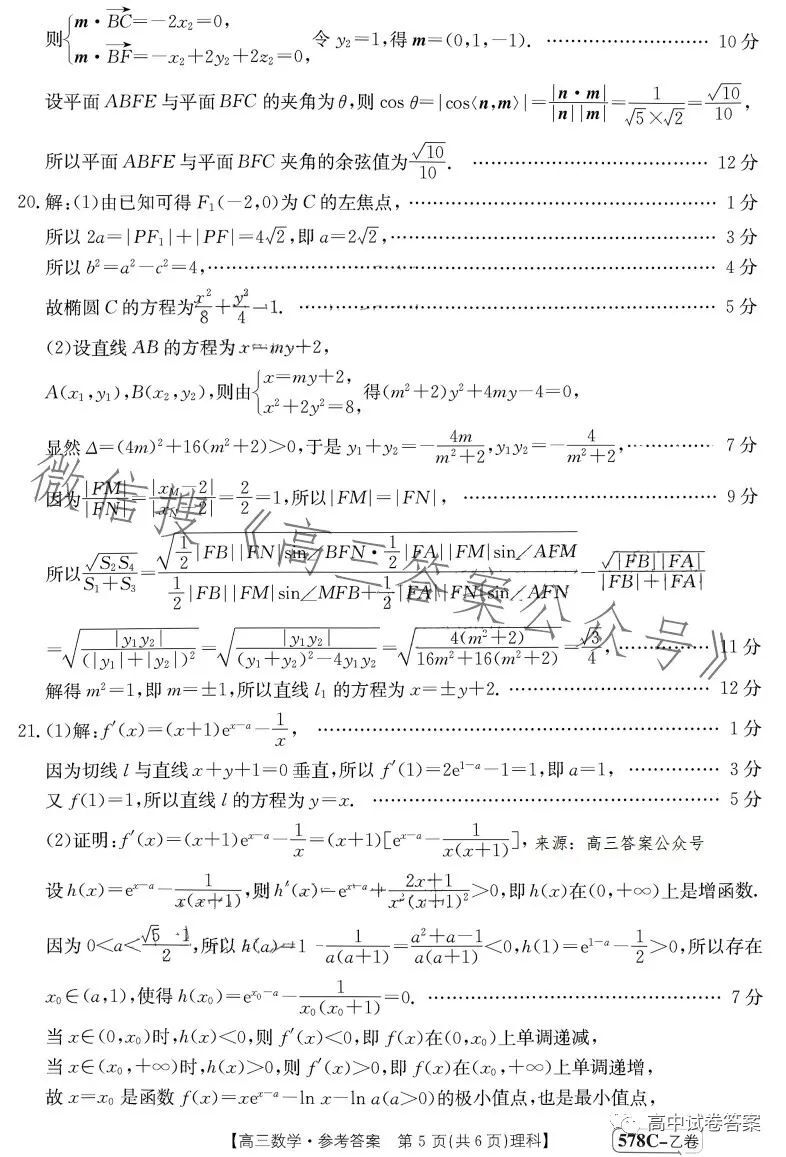 则{m·BC→=-2x₂=0, m·BF→=-x₂+2y₂+2z₂=0, 令 y₂=1,得 m=(0,1,-1). …… 10 分
设平面 ABFE 与平面 BFC 的夹角为 θ,则 cos θ=|cos⟨n,m⟩|=|n·m|/(|n||m|)=1/(√5×√2)=√10/10,
所以平面 ABFE 与平面 BFC 夹角的余弦值为√10/10. …… 12 分
20. 解:(1)由已知可得 F₁(-2,0)为 C 的左焦点, …… 1 分
所以 2a=|PF₁|+|PF|=4√2,即 a=2√2, …… 3 分
所以 b²=a²-c²=4, …… 4 分
故椭圆 C 的方程为x²/8+y²/4=1. …… 5 分
(2)设直线 AB 的方程为 x=my+2,
A(x₁,y₁),B(x₂,y₂),则由{x=my+2, x²+2y²=8, 得(m²+2)y²+4my-4=0,
显然 Δ=(4m)²+16(m²+2)>0,于是 y₁+y₂=-4m/(m²+2),y₁y₂=-4/(m²+2), …… 7 分
因为|FM|/|FN|=|x_M-2|/|x_N-2|=2/2=1,所以|FM|=|FN|, …… 9 分
所以√(S₂S₄)/(S₁+S₃)=√(1/2|FB||FN|sin∠BFN·1/2|FA||FM|sin∠AFM)/(1/2|FB||FM|sin∠MFB+1/2|FA||FN|sin∠AFN)=√(|FB||FA|)/(|FB|+|FA|)
=√(|y₁y₂|/(|y₁|+|y₂|)²)=√(|y₁y₂|/((y₁+y₂)²-4y₁y₂))=√(4(m²+2)/(16m²+16(m²+2)))=√3/4, …… 11 分
解得 m²=1,即 m=±1,所以直线 l₁ 的方程为 x=±y+2. …… 12 分
21. (1)解:f′(x)=(x+1)e^(x-a)-1/x, …… 1 分
因为切线 l 与直线 x+y+1=0 垂直,所以 f′(1)=2e^(1-a)-1=1,即 a=1, …… 3 分
又 f(1)=1,所以直线 l 的方程为 y=x. …… 5 分
(2)证明:f′(x)=(x+1)e^(x-a)-1/x=(x+1)[e^(x-a)-1/(x(x+1))], 来源：高三答案公众号
设 h(x)=e^(x-a)-1/(x(x+1)),则 h′(x)=e^(x-a)+(2x+1)/(x²(x+1)²)>0,即 h(x)在(0,+∞)上是增函数.
因为 0<a<(√5-1)/2,所以 h(a)=1-1/(a(a+1))=(a²+a-1)/(a(a+1))<0,h(1)=e^(1-a)-1/2>0,所以存在
x₀∈(a,1),使得 h(x₀)=e^(x₀-a)-1/(x₀(x₀+1))=0. …… 7 分
当 x∈(0,x₀)时,h(x)<0,则 f′(x)<0,即 f(x)在(0,x₀)上单调递减,
当 x∈(x₀,+∞)时,h(x)>0,则 f′(x)>0,即 f(x)在(x₀,+∞)上单调递增,
故 x=x₀ 是函数 f(x)=xe^(x-a)-ln x-ln a(a>0)的极小值点,也是最小值点,
【高三数学·参考答案 第 5 页(共 6 页)理科】
578C-乙卷
高中试卷答案
微信搜《高三答案公众号》